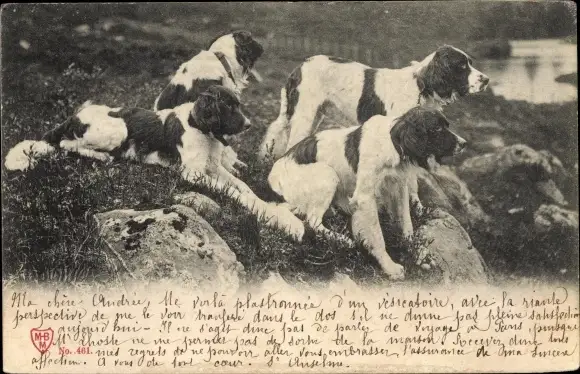 Ma chère Andrée, Me voilà plastronnée d'un vésicatoire, avec la riante
perspective de me le voir transférer dans le dos s'il ne donne pas pleine satisfaction
aujourd'hui - Il ne s'agit donc pas de parler de voyage à Sens, puisque
ne me permet pas de sortir de la maison. Recevez donc tous
mes regrets de ne pouvoir aller vous embrasser, l'assurance de ma sincère
affection. A vous de tout cœur. St Anselme.
M.B.M
No. 461.